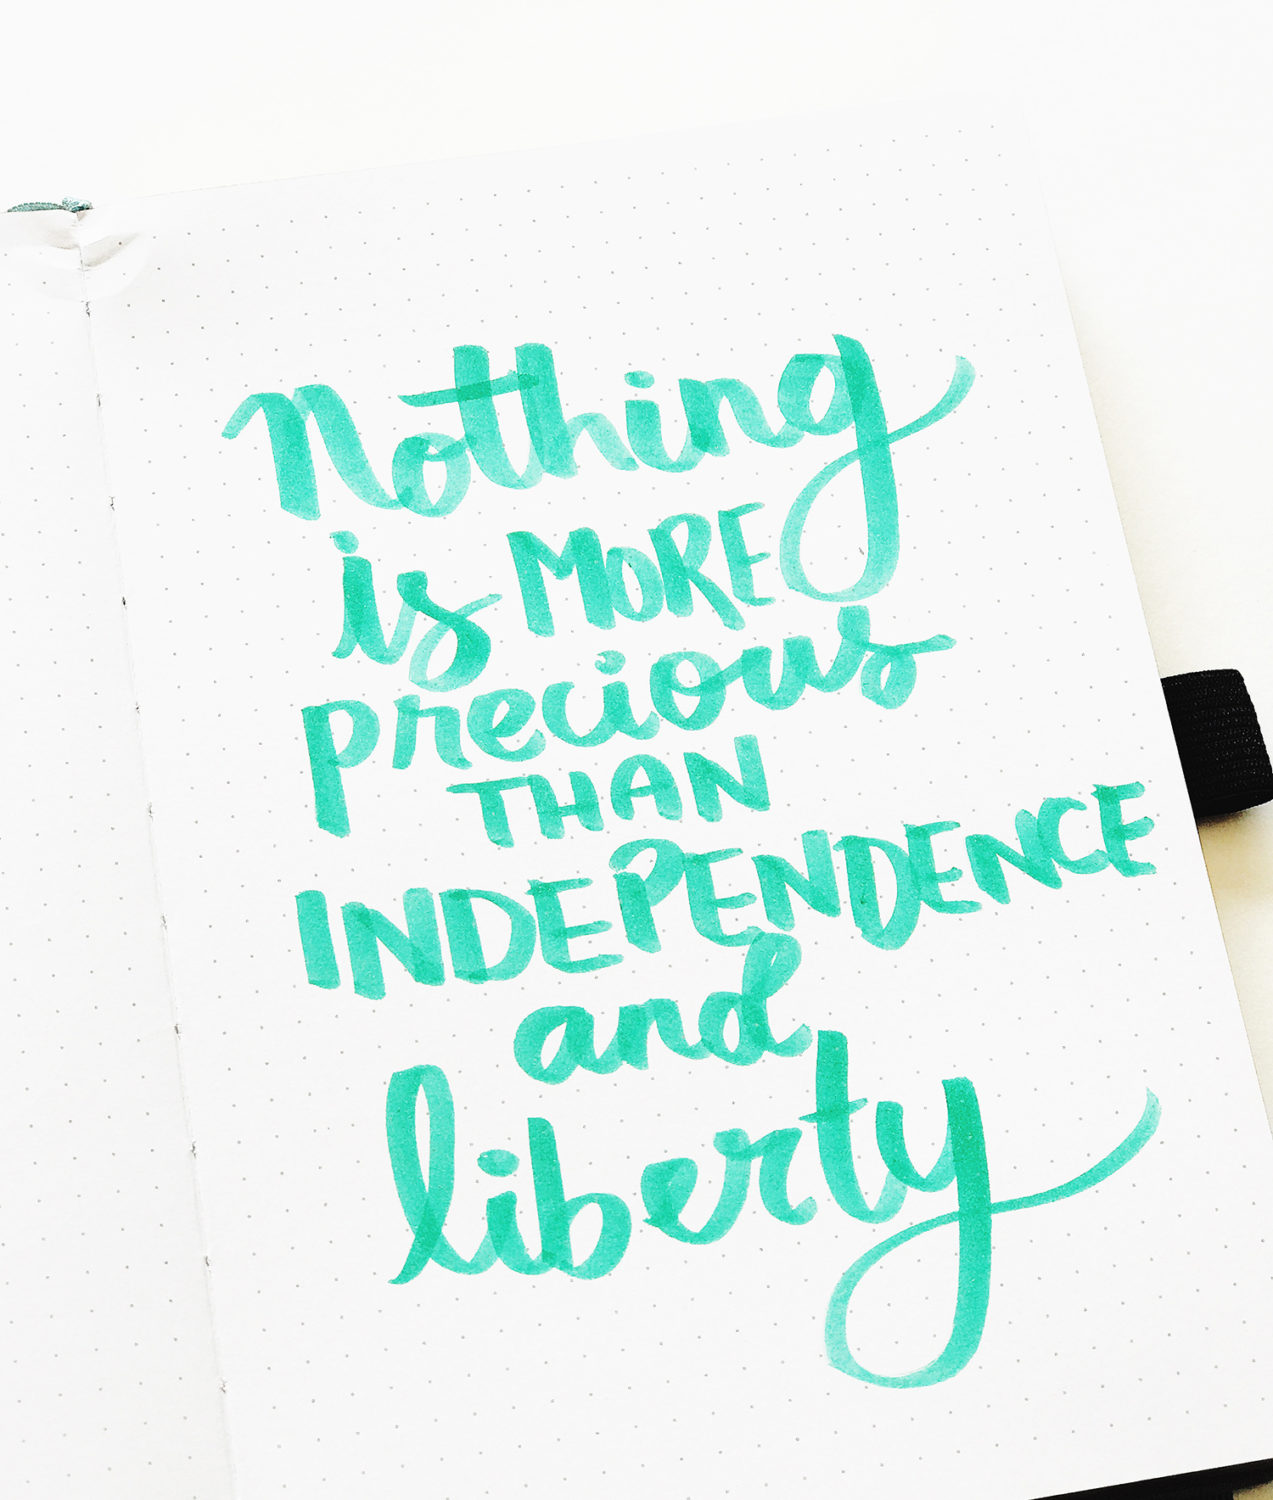 Nothing
is MORE
precious
THAN
INDEPENDENCE
and
liberty